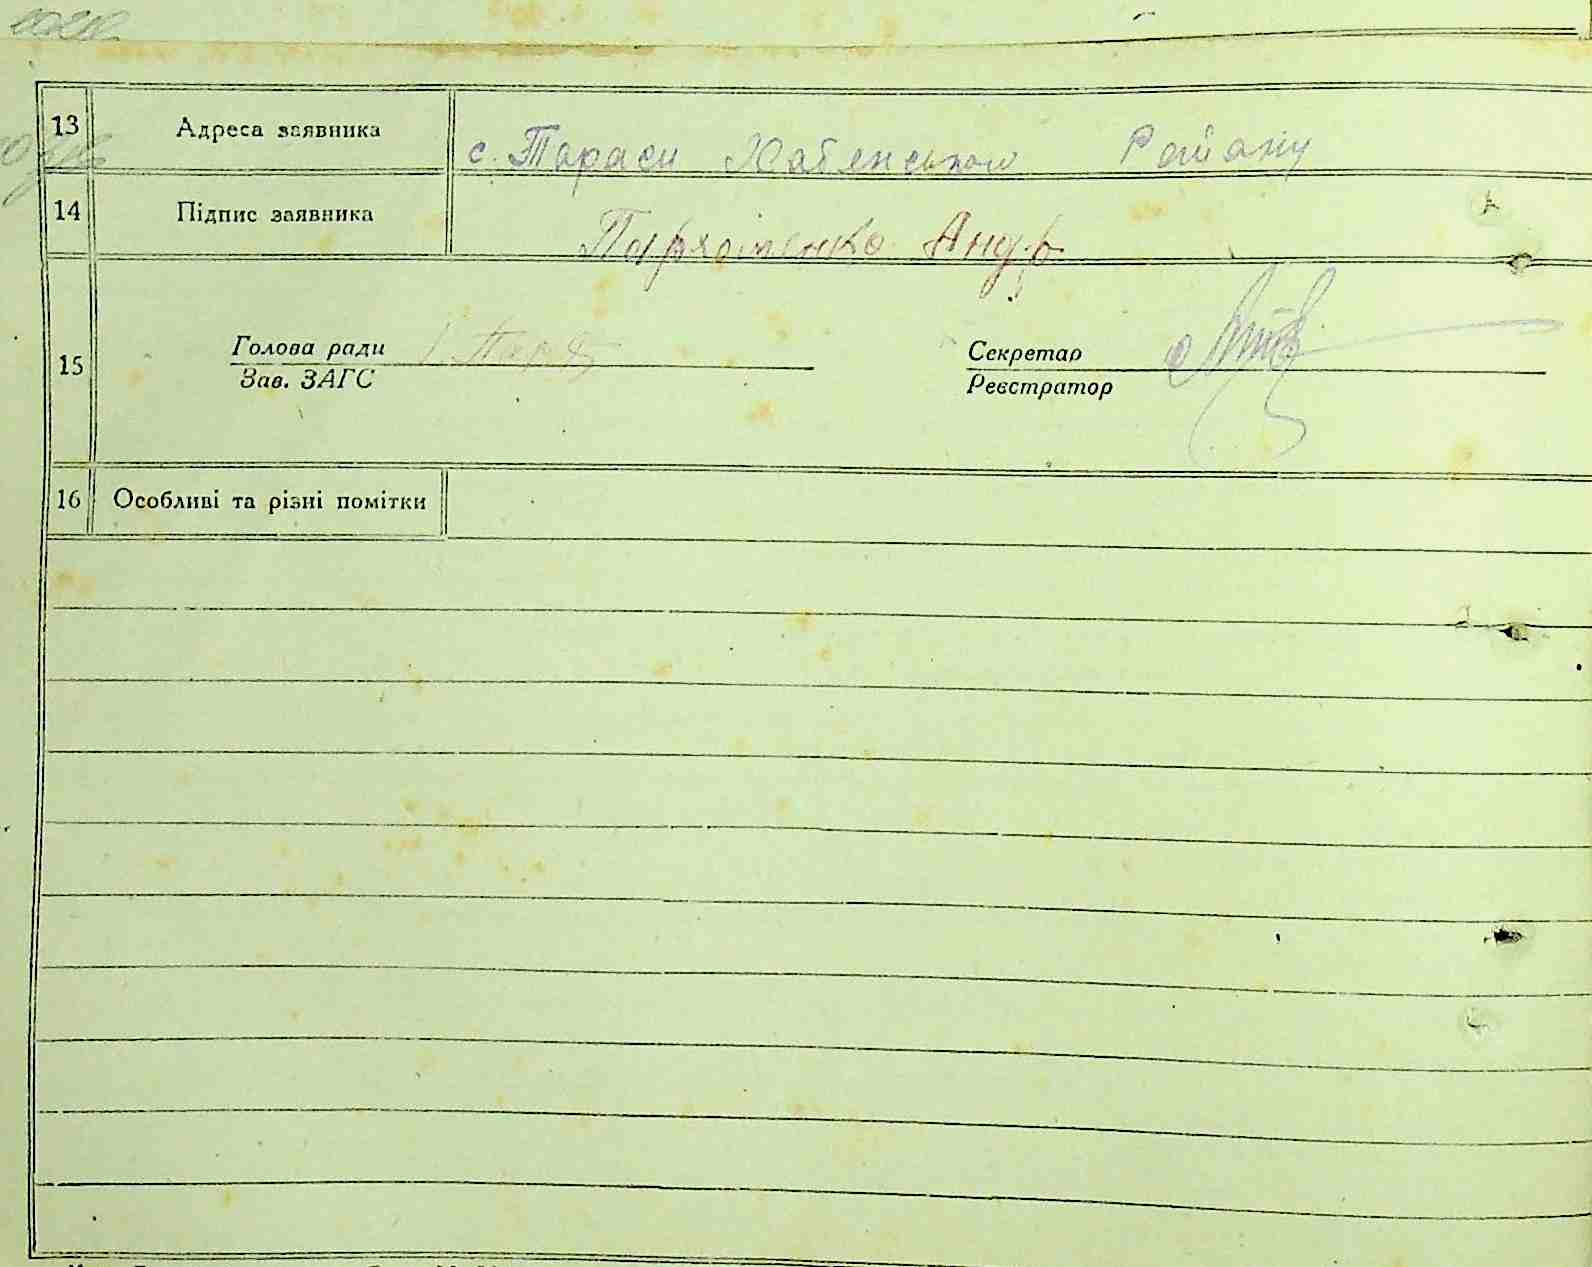 13 Адреса заявника с. Тараси Хабенського Району
14 Підпис заявника Пархоменко Андр
15 Голова ради
Зав. ЗАГС
Секретар
Реєстратор
16 Особливі та різні помітки